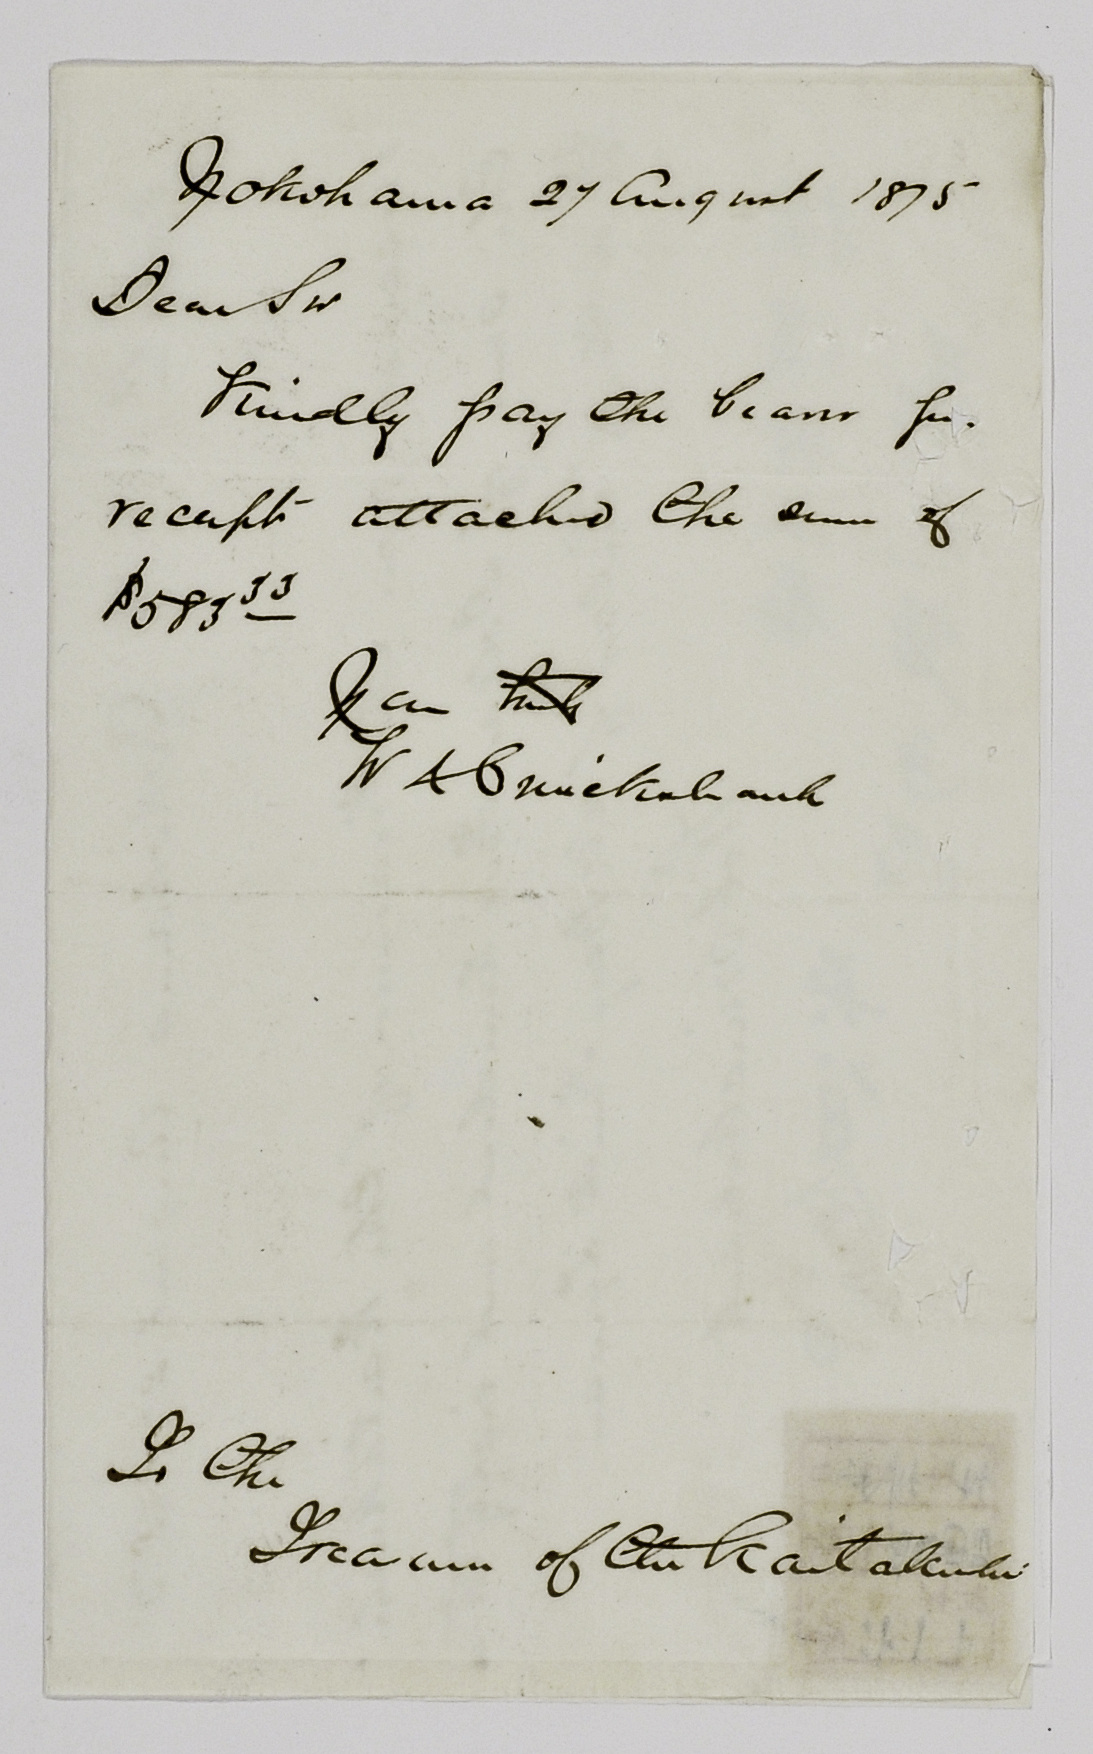 Yokohama 27 August 1875
Dear Sir
Kindly pay the bearer per
receipt attached the sum of
$583 33
Your truly
W A Cruickshank
To the
Treasurer of the Kaitakushi